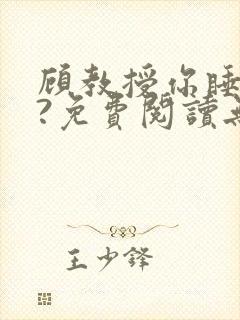 顾教授你睡
?免費閱讀
王少鋒